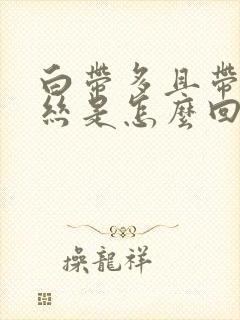 白帶多且帶
絲是怎麼回
操龍祥